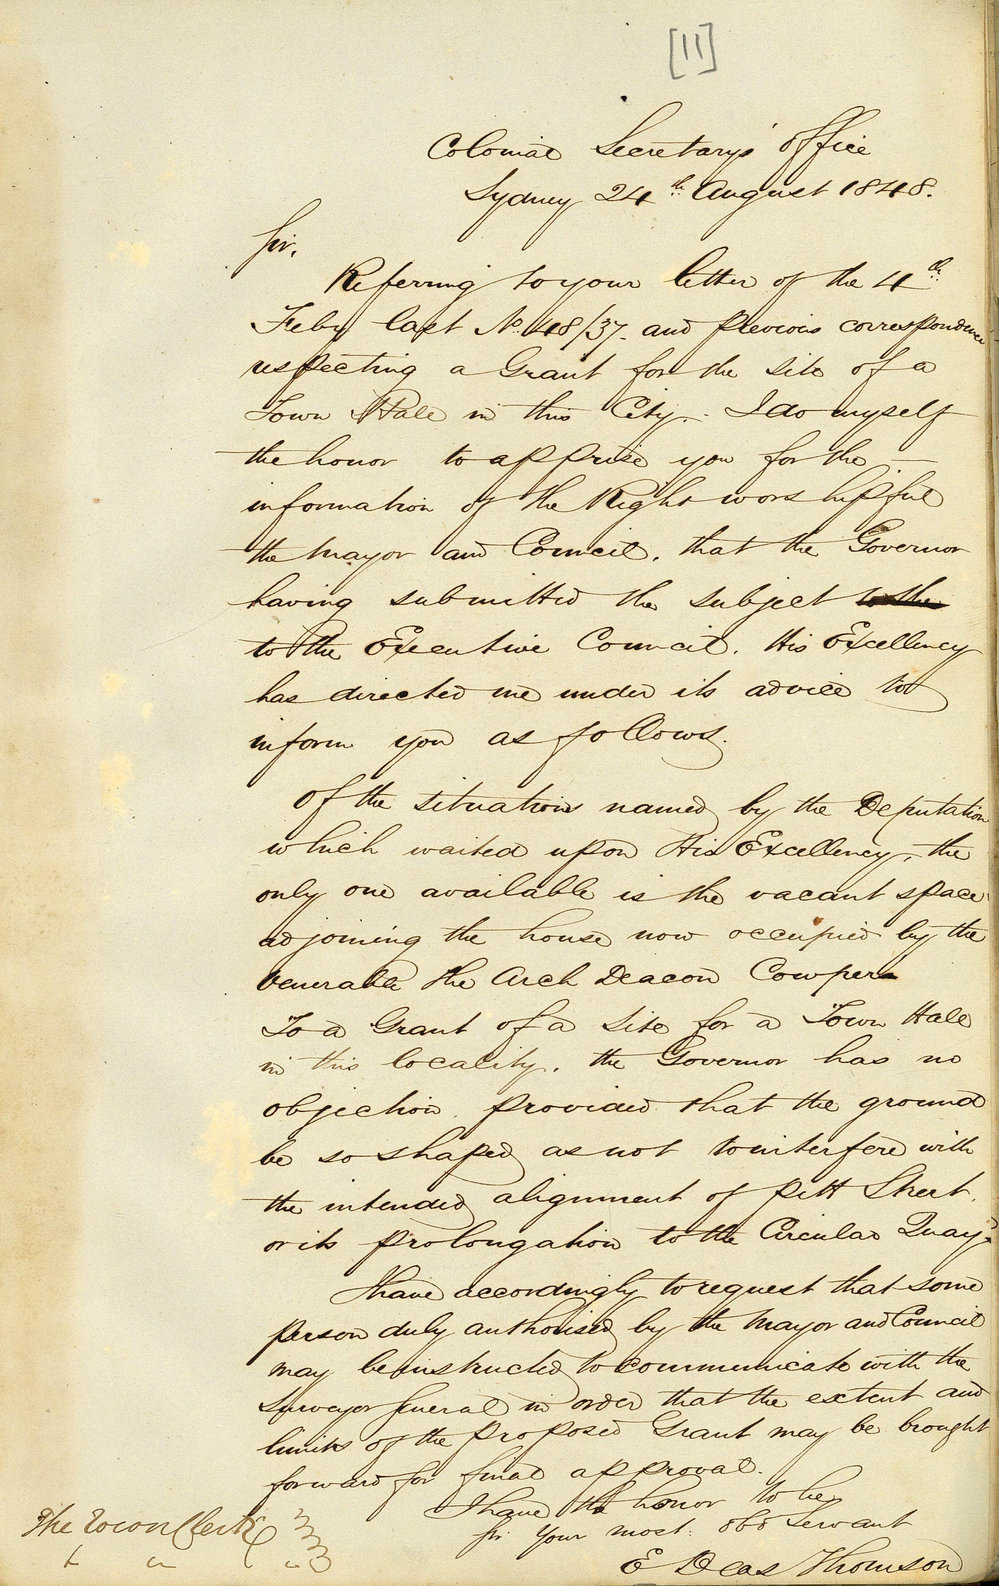 [11]
Colonial Secretary's Office
Sydney 24th August 1848.
Sir,
Referring to your letter of the 4th
Feby last No 48/37. and previous correspondence
respecting a Grant for the site of a
Town Hall in this City. I do myself
the honor to apprise you for the
information of the Right worshipful
the Mayor and Council, that the Governor
having submitted the subject to the
to the Executive Council. His Excellency
has directed me under its advice to
inform you as follows.
Of the situations named by the Deputation
which waited upon His Excellency, the
only one available is the vacant space
adjoining the house now occupied by the
Venerable the Arch Deacon Cowper
To a Grant of a Site for a Town Hall
in this locality, the Governor has no
objection provided that the ground
be so shaped as not to interfere with
the intended alignment of Pitt Street,
or its prolongation to the Circular Quay.
I have accordingly to request that some
person duly authorised by the Mayor and Council
may be instructed to communicate with the
Surveyor General in order that the extent and
limits of the proposed Grant may be brought
forward for final approval.
I have the honor to be
Sir Your most obt Servant
E Deas Thomson
The Town Clerk